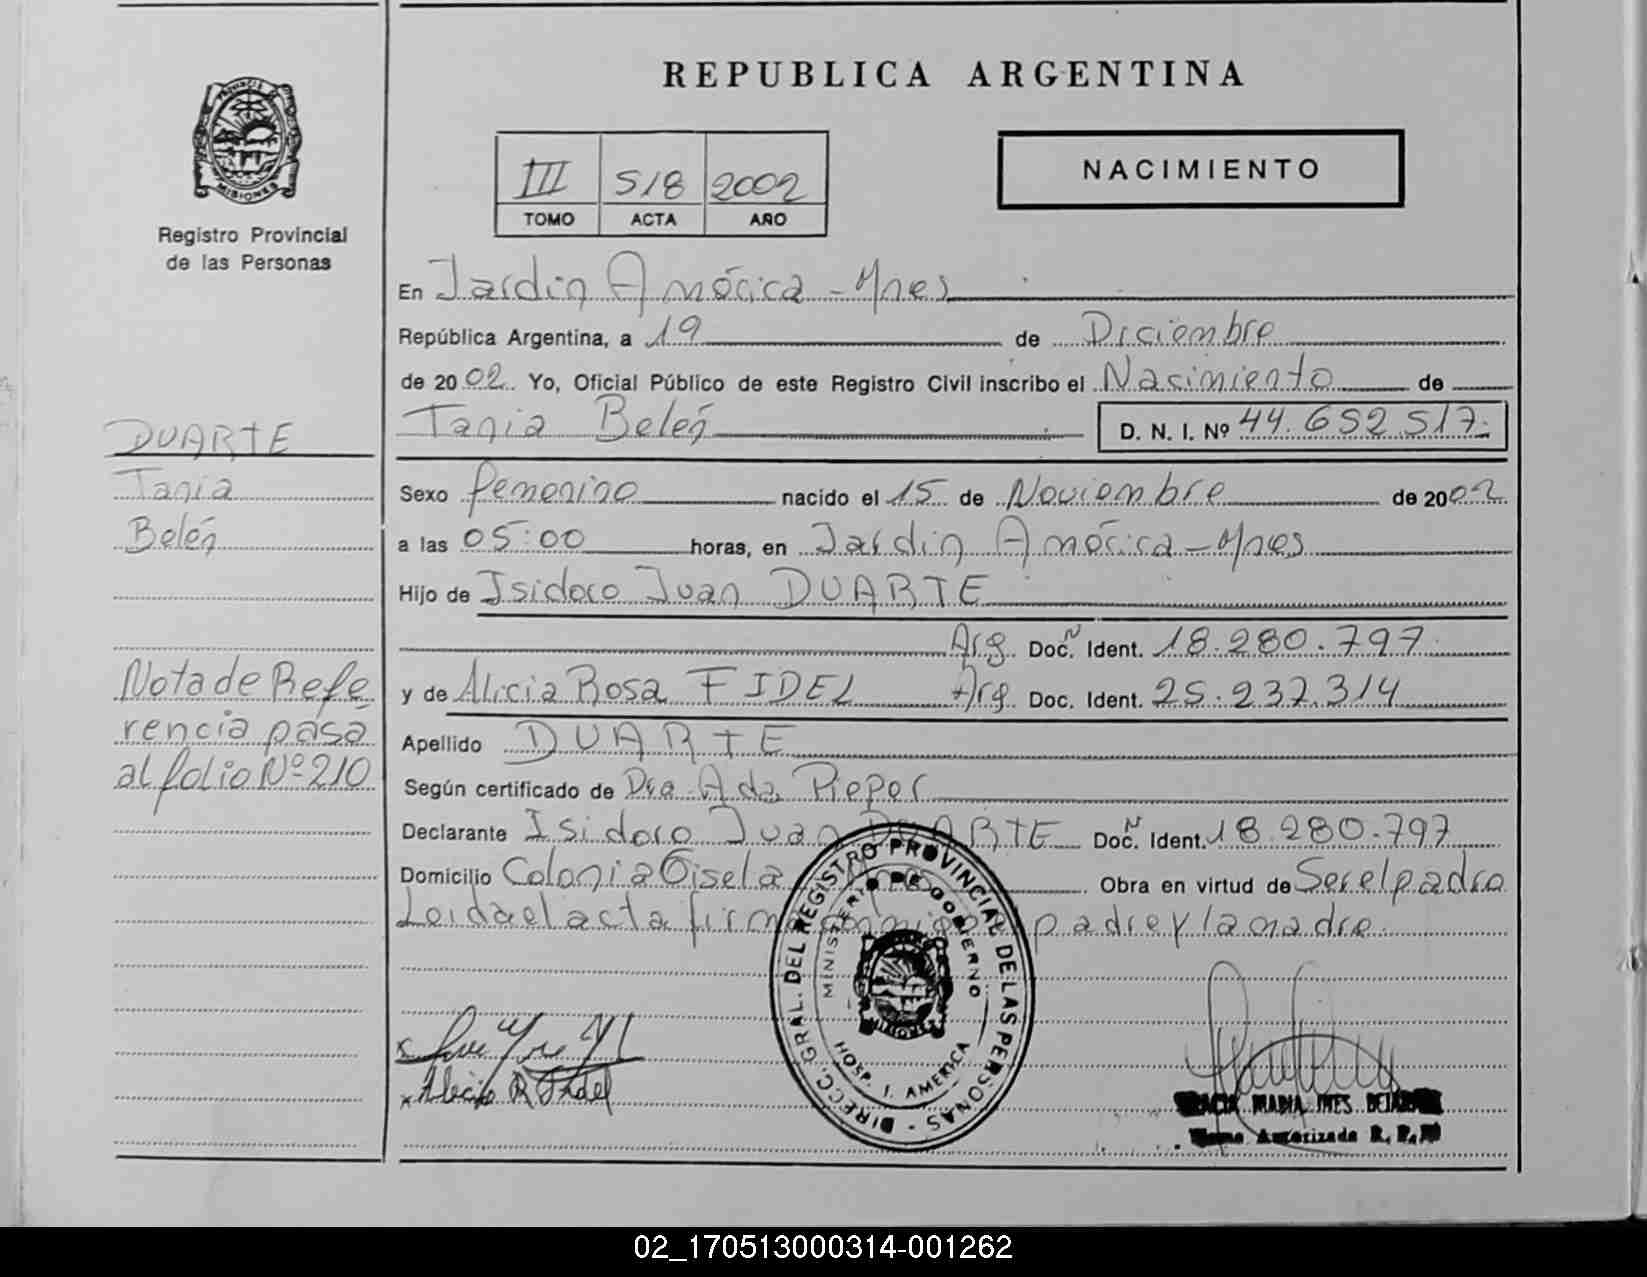 REPUBLICA ARGENTINA
III 518 2002
TOMO ACTA AÑO
NACIMIENTO
MISIONES
Registro Provincial
de las Personas
En Jardín América - Mnes
República Argentina, a 19 de Diciembre
de 2002 Yo, Oficial Público de este Registro Civil inscribo el Nacimiento de
Tania Belén D. N. I. Nº 44.652.517.
Sexo femenino nacido el 15 de Noviembre de 2002
a las 05:00 horas, en Jardín América - Mnes
Hijo de Isidoro Juan DUARTE
Arg. Doc. N Ident. 18.280.797
y de Alicia Rosa FIDEL Arg Doc. Ident. 25.237.314
Apellido DUARTE
Según certificado de Dra. Ada Pieper
Declarante Isidoro Juan DUARTE Doc. N Ident. 18.280.797
Domicilio Colonia Gisela Obra en virtud de Ser el padre
Leida el acta firma padre y la madre.
DUARTE
Tania
Belén
Nota de Refe
rencia pasa
al folio Nº 210
DIRECC. GRAL. DEL REGISTRO PROVINCIAL DE LAS PERSONAS
MINISTERIO DE GOBIERNO
MISIONES
HOSP. J. AMERICA
Alicia R Fidel
MARIA INES
Autorizada R. P.
02_170513000314-001262